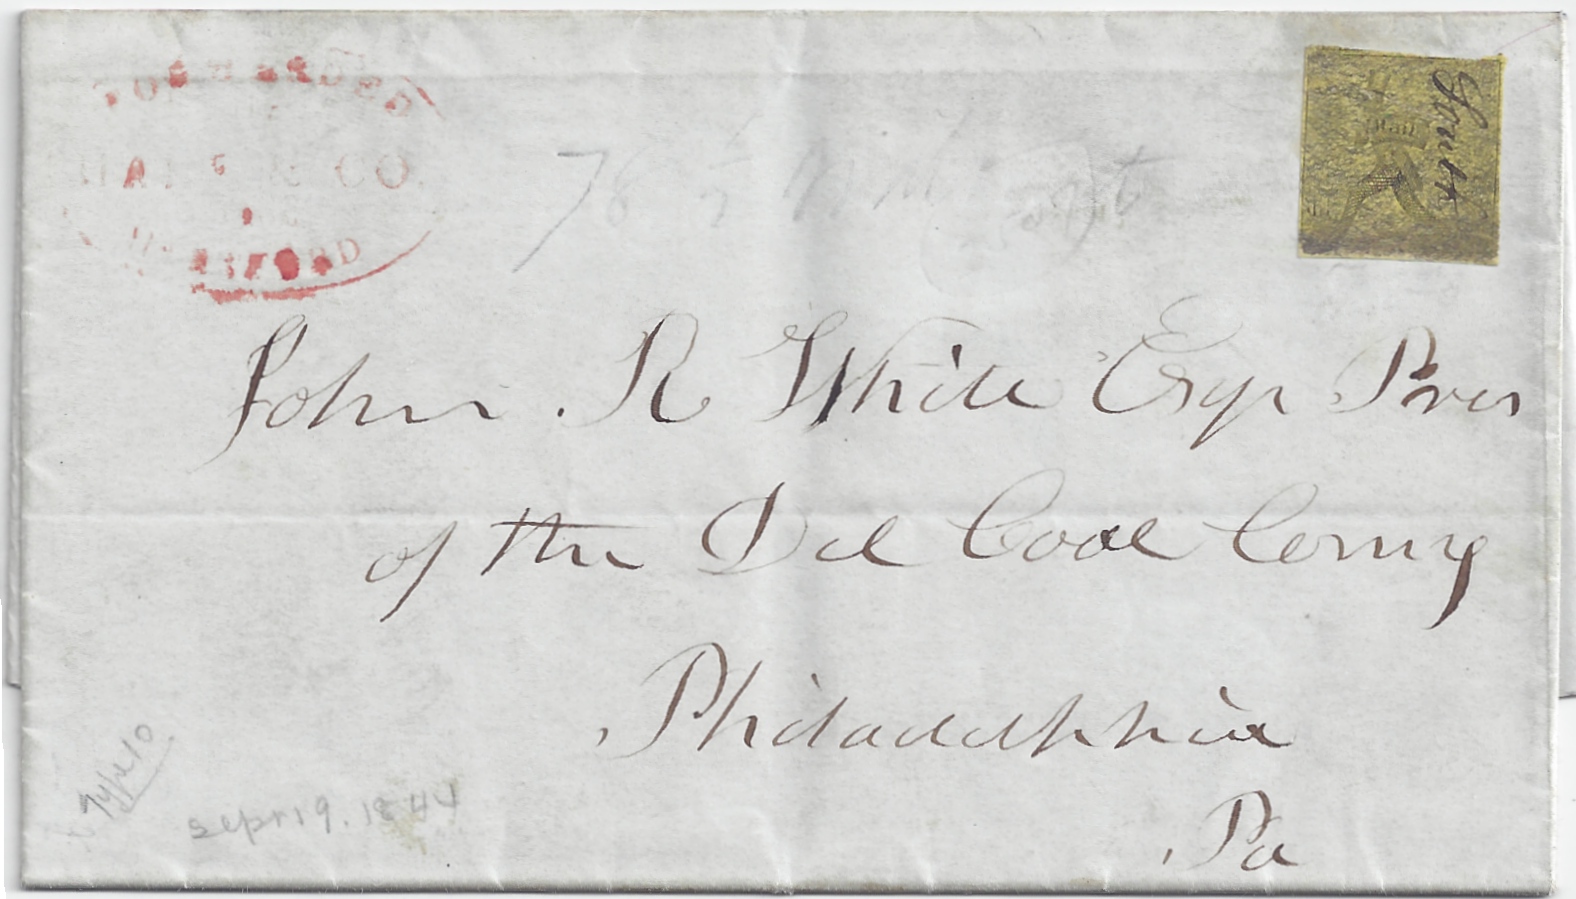 FORWARDED
HALE & CO.
HARTFORD
South
John R White Esqr Pres
of the Del Coal Comy
Philadelphia
Pa
Type 10
Sept 19. 1844